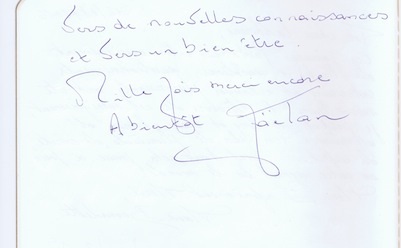 vers de nouvelles connaissances
et vers un bien être.
Mille fois merci encore
A bientôt Gaëtan